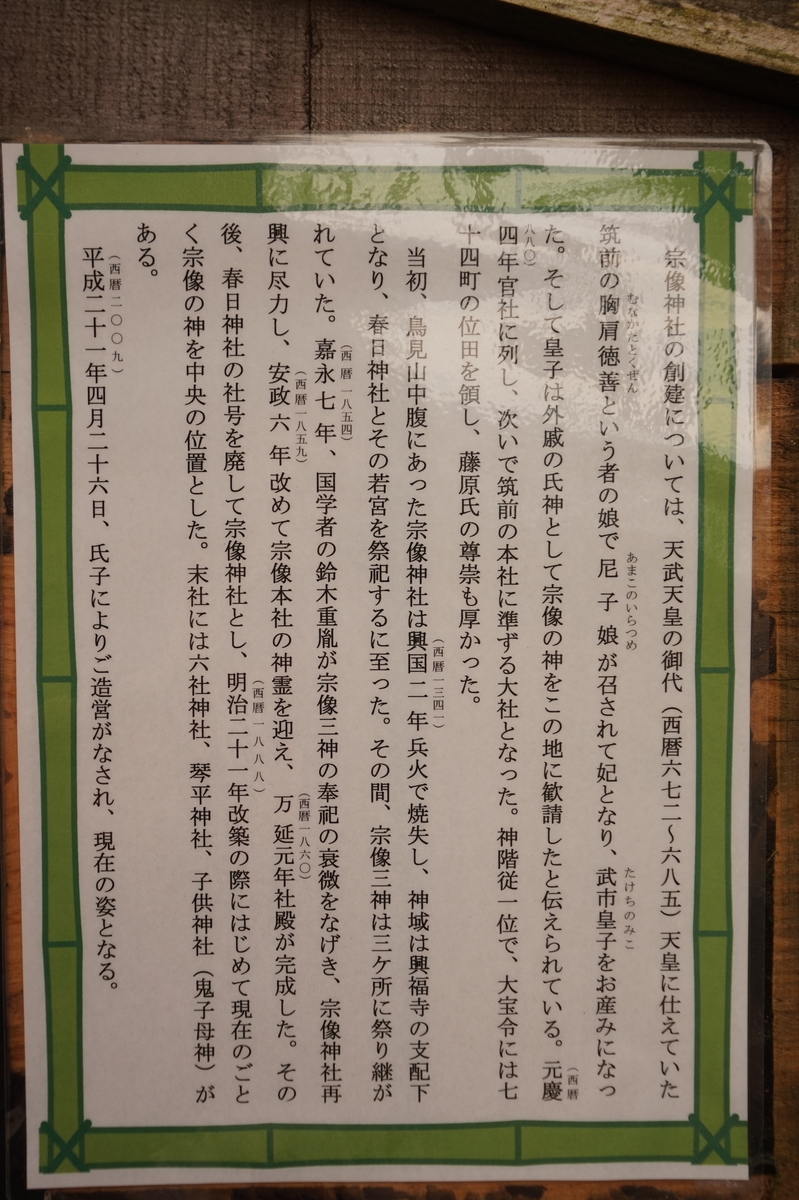 宗像神社の創建については、天武天皇の御代（西暦六七二～六八五）天皇に仕えていた
筑前の胸肩徳善という者の娘で尼子娘が召されて妃となり、武市皇子をお産みになっ
むなかたとくぜん
あまこのいらつめ
たけちのみこ
た。そして皇子は外戚の氏神として宗像の神をこの地に歓請したと伝えられている。元慶
（西暦
四年官社に列し、次いで筑前の本社に準ずる大社となった。神階従一位で、大宝令には七
八八〇）
十四町の位田を領し、藤原氏の尊崇も厚かった。
当初、鳥見山中腹にあった宗像神社は興国二年兵火で焼失し、神域は興福寺の支配下
（西暦一三四一）
となり、春日神社とその若宮を祭祀するに至った。その間、宗像三神は三ケ所に祭り継が
れていた。嘉永七年、国学者の鈴木重胤が宗像三神の奉祀の衰微をなげき、宗像神社再
（西暦一八五四）
興に尽力し、安政六年改めて宗像本社の神霊を迎え、万延元年社殿が完成した。その
（西暦一八五九）
（西暦一八六〇）
後、春日神社の社号を廃して宗像神社とし、明治二十一年改築の際にはじめて現在のごと
（西暦一八八八）
く宗像の神を中央の位置とした。末社には六社神社、琴平神社、子供神社（鬼子母神）が
ある。
平成二十一年四月二十六日、氏子によりご造営がなされ、現在の姿となる。
（西暦二〇〇九）